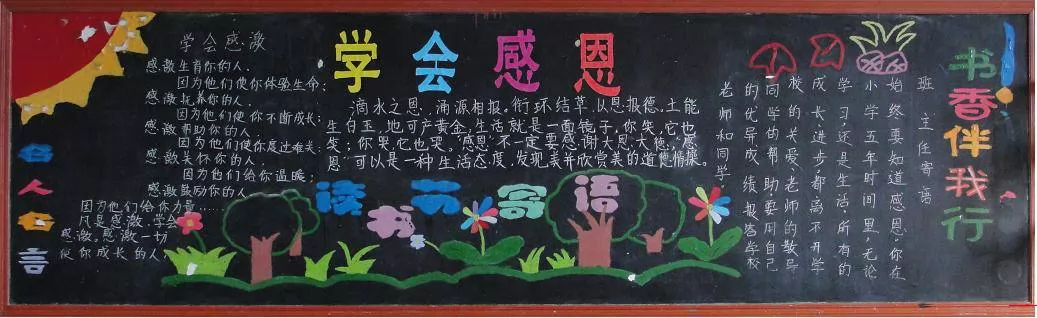 学会感恩
名人名言
学会感激
感激生育你的人.
因为他们使你体验生命;
感激抚养你的人.
因为他们使你不断成长;
感激帮助你的人.
因为他们使你度过难关;
感激关怀你的人.
因为他们给你温暖;
感激鼓励你的人.
因为他们给你力量……
凡是感激.学会
感激。感激一切
使你成长的人.
滴水之恩、涌源相报,衔环结草.以恩报德,土能
生白玉,地可产黄金,生活就是一面镜子,你笑,它也
笑;你哭,它也哭,"感恩"不一定要感谢大恩大德,"感
恩"可以是一种生活态度,发现美并欣赏美的道德情操。
读书寄语
书香伴我行
班主任寄语
始终要知道感恩,你在
小学五年时间里,无论
学习还是生活,所有的
成长进步,都离不开学
校的关爱、老师的教导
同学的帮助,要用自己
的优异成绩报答学校
老师和同学